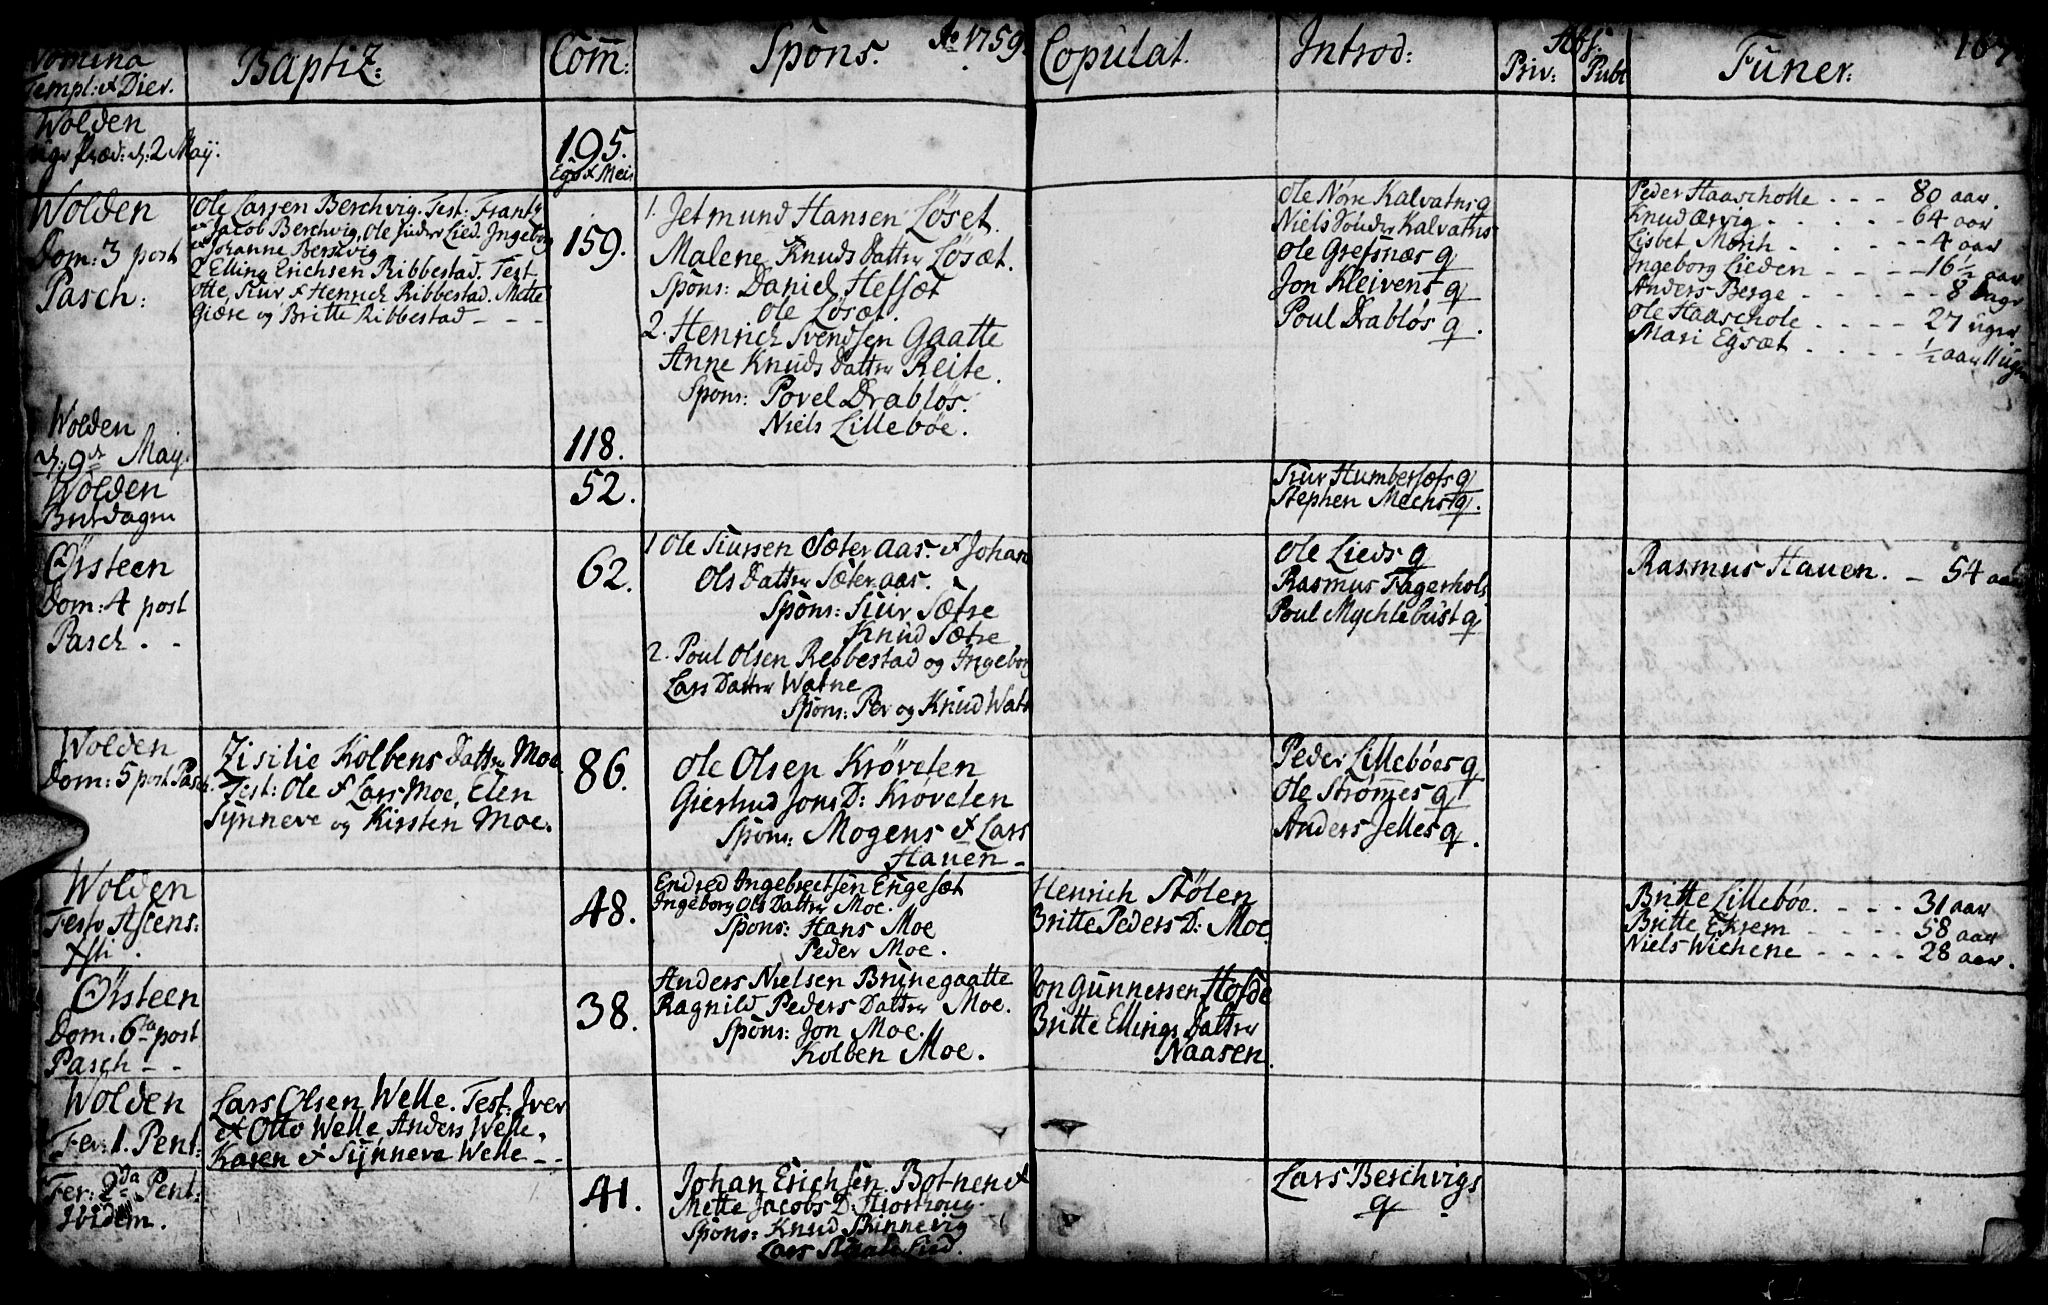 Nomina
Templ: & Dier.
Baptiz:
Com̄:
Spons. Ao 1759.
Copulat.
Introd:
Abs:
Priv: Publ
Funer: 167
Wolden
d: 2 May.
195.
Wolden
Dom: 3 post
Pasch:
1 Ole Larsen Berchvig. Test: Frantz
Jacob Berchvig, Ole Lied. Ingeborg
Johanne Berchvig
2 Elling Erichsen Ribbestad. Test
Otte, Siur & Henrich Ribbestad. Mette
Giære og Britte Ribbestad - - -
159.
1. Jetmund Hansen Løset.
Malene Knuds Datter Løsæt.
Spons: Daniel Hefsæt
Ole Løsæt.
2. Henrich Svendsen Gaatte
Anne Knuds Datter Reite.
Spons: Povel Drabløs.
Niels Lillebøe.
Ole Nørre Kalvatns q
Niels Sønder Kalvatns
Ole Grefsnæs q
Jon Kleivens q
Poul Drabløs q.
Peder Haascholle . - - 80 aar.
Knud Ørvig - - - - 64 aar
Lisbet Morih - - - - 4 aar
Ingeborg Lieden - - - - 16½ aar
Anders Berge - - - - 8 dage
Ole Haaschole - - - - 27 uger
Mari Egsæt . - - - ½ aar 11 uger
Wolden
d. 9de May.
118.
Wolden
Buusdagen
52.
Siur Humbersæts q
Stephen Meens q.
Ørsteen
Dom: 4 post
Pasch. -
62.
1 Ole Siursen Sæteraas. & Johan
Ols Datter Sæteraas.
Spons: Siur Sætre
Knud Sætre
2. Poul Olsen Rebbestad og Ingeborg
Lars Datter Watne
Spons: Per og Knud Watn
Ole Lieds q
Rasmus Fagerhols
Poul Mychlebust q
Rasmus Hauen. - 54 aar
Wolden
Dom: 5 post Pasch.
Zisilie Kolbens Datter Moe
Test: Ole & Lars Moe, Elen
Synneve og Kirsten Moe.
86.
Ole Olsen Krøvelen
Giertrud Jons D: Krovelen
Spons: Mogens & Lars
Hauen -
Peder Lillebøes q
Ole Strømmes q
Anders Jelles q.
Wolden
Festo Ascens:
Xsti.
48.
Endred Ingebrectsen Engesæt
Ingeborg Ols Datter Moe.
Spons: Hans Moe
Peder Moe.
Henrich Stølen
Britte Peders D: Moe.
Britte Lillebøe. - - - 31 aar
Britte Ekrem - - - - 58 aar
Niels Wichene - - - - 28 aar.
Ørsteen
Dom. 6ta post
Pasch - -
38.
Anders Nielsen Brunegaatte
Ragnild Peders Datter Moe.
Spons: Jon Moe.
Kolben Moe.
Jon Gunnersen Hofde
Britte Ellings Datter
Naasen.
Wolden
Fer: 1. Pent:
Lars Olsen Welle. Test: Iver
& Otto Welle, Anders Welle,
Karen & Synneve Welle - -
Fer: 2da Pent:
Ibidem.
41.
Johan Erichsen Botnen &
Mette Jacobs D:
Spons: Knud Brinnevig
Lars
Lars Berchvigs
q